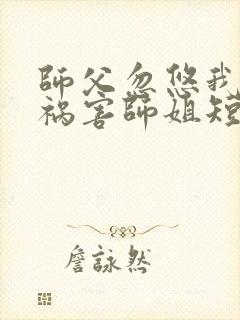 師父忽悠我
禍害師姐短
詹詠然